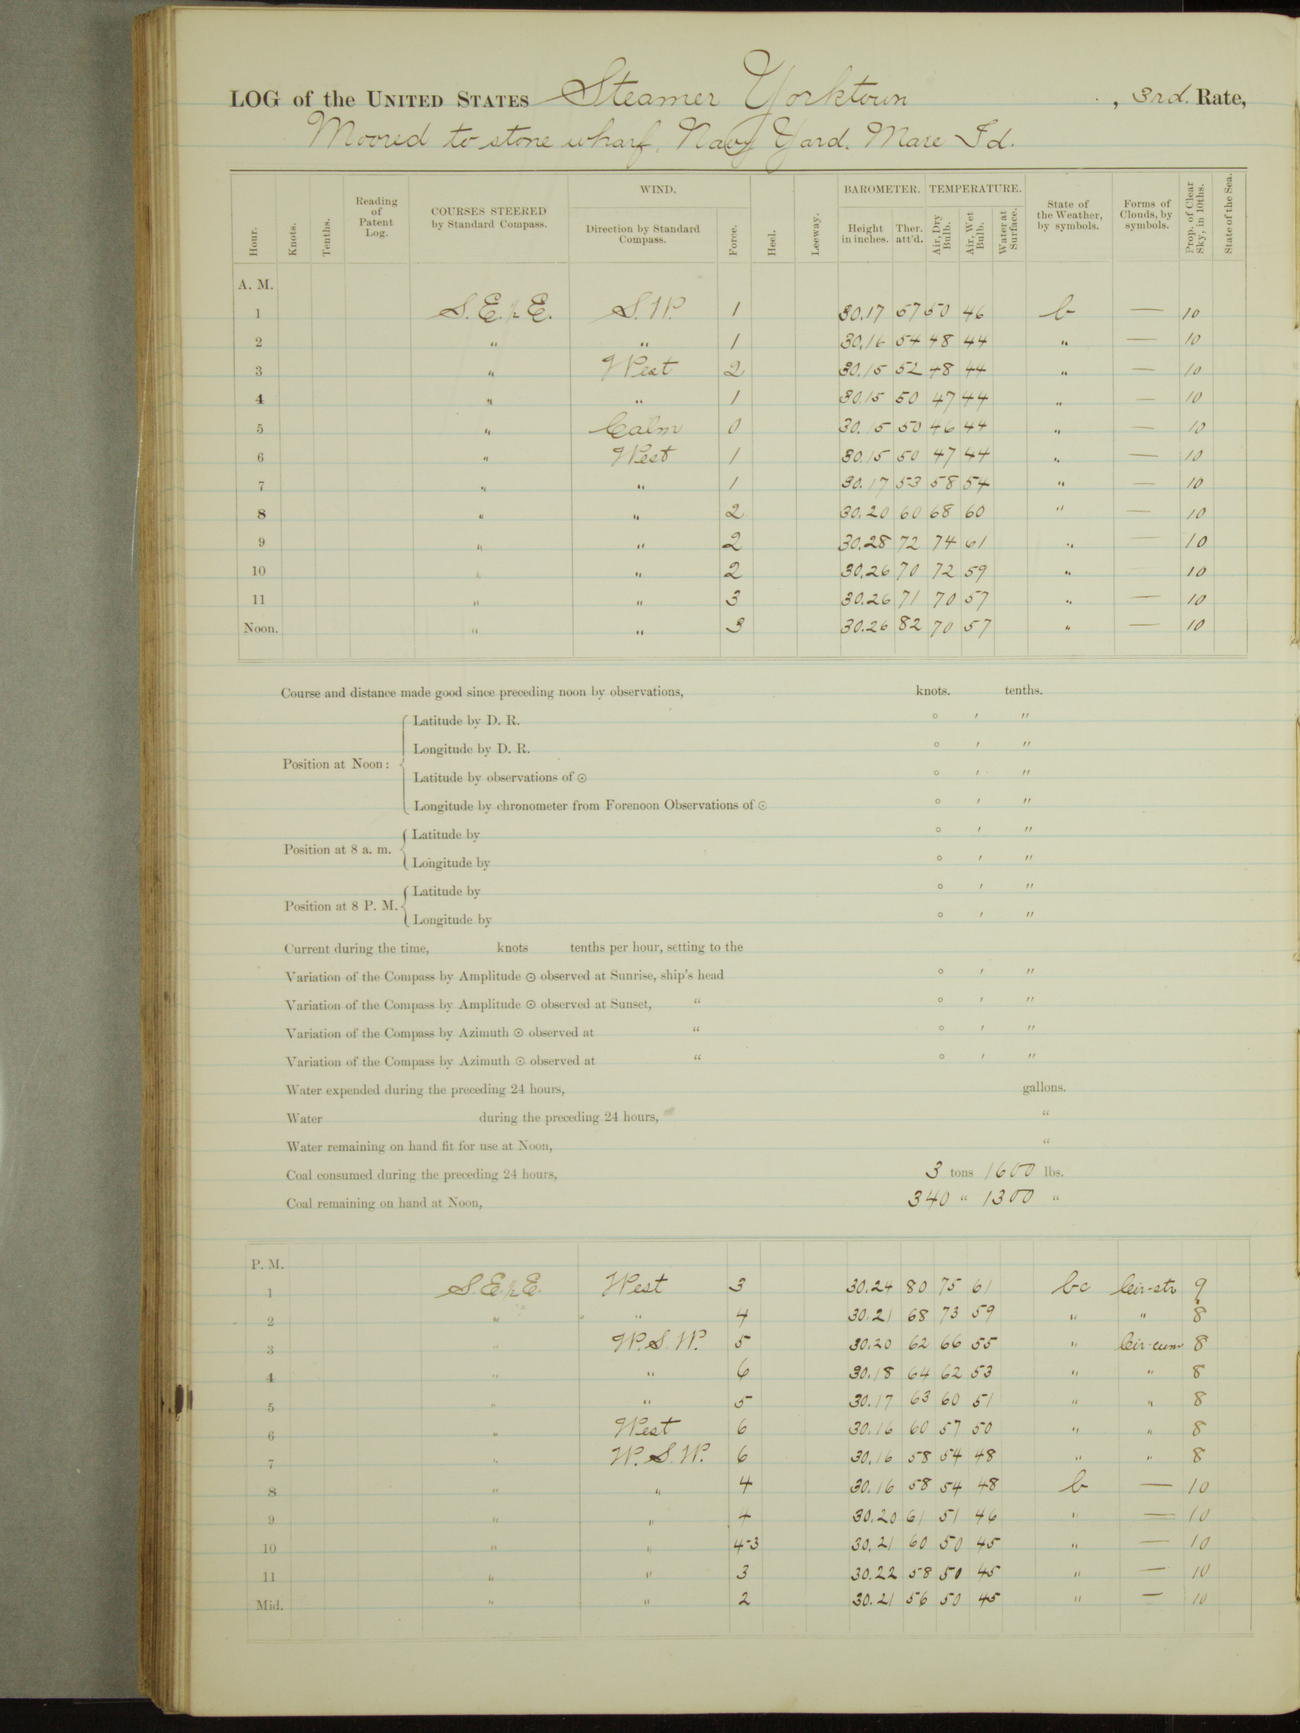 LOG of the UNITED STATES Steamer Yorktown, 3rd. Rate,
Moored to stone wharf, Navy Yard, Mare Id.
Hour. Knots. Tenths. Reading of Patent Log. COURSES STEERED by Standard Compass. WIND. Direction by Standard Compass. Force. Heel. Leeway. BAROMETER. Height in inches. Ther. att'd. TEMPERATURE. Air, Dry Bulb. Air, Wet Bulb. Water at Surface. State of the Weather, by symbols. Forms of Clouds, by symbols. Prop. of Clear Sky, in 10ths. State of the Sea.
A. M.
1 S.E. ½ E. S.W. 1 30.17 57 50 46 b — 10
2 " " 1 30.16 54 48 44 " — 10
3 " West 2 30.15 52 48 44 " — 10
4 " " 1 30.15 50 47 44 " — 10
5 " Calm 0 30.15 50 46 44 " — 10
6 " West 1 30.15 50 47 44 " — 10
7 " " 1 30.17 53 58 54 " — 10
8 " " 2 30.20 60 68 60 " — 10
9 " " 2 30.28 72 74 61 " — 10
10 " " 2 30.26 70 72 59 " — 10
11 " " 3 30.26 71 70 57 " — 10
Noon. " " 3 30.26 82 70 57 " — 10
Course and distance made good since preceding noon by observations, knots. tenths.
Position at Noon: Latitude by D. R. ° ′ ″
Longitude by D. R. ° ′ ″
Latitude by observations of ☉ ° ′ ″
Longitude by chronometer from Forenoon Observations of ☉ ° ′ ″
Position at 8 a. m. Latitude by ° ′ ″
Longitude by ° ′ ″
Position at 8 P. M. Latitude by ° ′ ″
Longitude by ° ′ ″
Current during the time, knots tenths per hour, setting to the
Variation of the Compass by Amplitude ☉ observed at Sunrise, ship's head ° ′ ″
Variation of the Compass by Amplitude ☉ observed at Sunset, " ° ′ ″
Variation of the Compass by Azimuth ☉ observed at " ° ′ ″
Variation of the Compass by Azimuth ☉ observed at " ° ′ ″
Water expended during the preceding 24 hours, gallons.
Water during the preceding 24 hours, "
Water remaining on hand fit for use at Noon, "
Coal consumed during the preceding 24 hours, 3 tons 1600 lbs.
Coal remaining on hand at Noon, 340 " 1300 "
P. M.
1 S.E. ½ E. West 3 30.24 80 75 61 bc Cir-str 9
2 " " 4 30.21 68 73 59 " " 8
3 " W.S.W. 5 30.20 62 66 55 " Cir-cum 8
4 " " 6 30.18 64 62 53 " " 8
5 " " 5 30.17 63 60 51 " " 8
6 " West 6 30.16 60 57 50 " " 8
7 " W.S.W. 6 30.16 58 54 48 " " 8
8 " " 4 30.16 58 54 48 b — 10
9 " " 4 30.20 61 51 46 " — 10
10 " " 4-3 30.21 60 50 45 " — 10
11 " " 3 30.22 58 50 45 " — 10
Mid. " " 2 30.21 56 50 45 " — 10